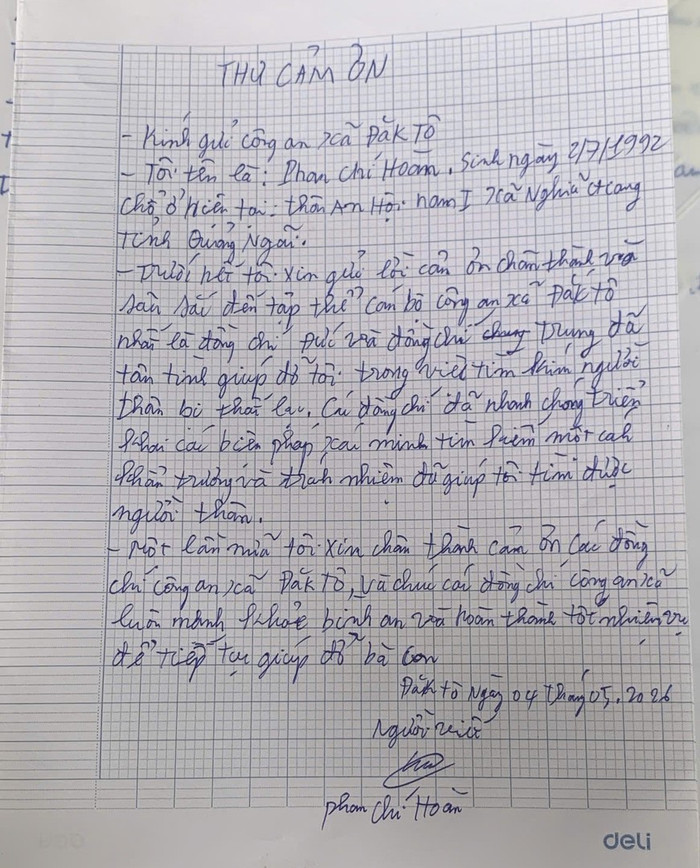 THƯ CẢM ƠN
- Kính gửi công an xã Đăk Tô
- Tôi tên là: Phan Chí Hoàn. Sinh ngày 2/7/1992
chổ ở hiên tai: thôn An Hội nam I xã Nghiã Giang
Tỉnh Quảng Ngãi.
- Trước hết tôi xin gửi lời cản ơn chân thành và
sân sắc đến tập thể cán bô công an xã Đăk Tô
nhất là đồng chí Đức và đồng chí Trung đã
tân tình giúp đở tôi trong viêc tìm kiếm người
thân bi thất lac. Các đồng chí đã nhanh chóng triển
khai các biên pháp xác minh tìm kiếm môt cah
khẩn trương và trách nhiêm đã giúp tôi tìm được
người thân.
- Một lần nữa tôi xin chân thành cảm ơn các đồng
chí công an xã Đăk Tô, và chúc các đồng chí công an xã
luôn manh khỏe bình an và hoàn thành tốt nhiên vụ
để tiếp tục giúp đỡ bà con
Đăk tô Ngày 04 tháng 05. 2026
Người viết
phan Chí Hoàn
deli